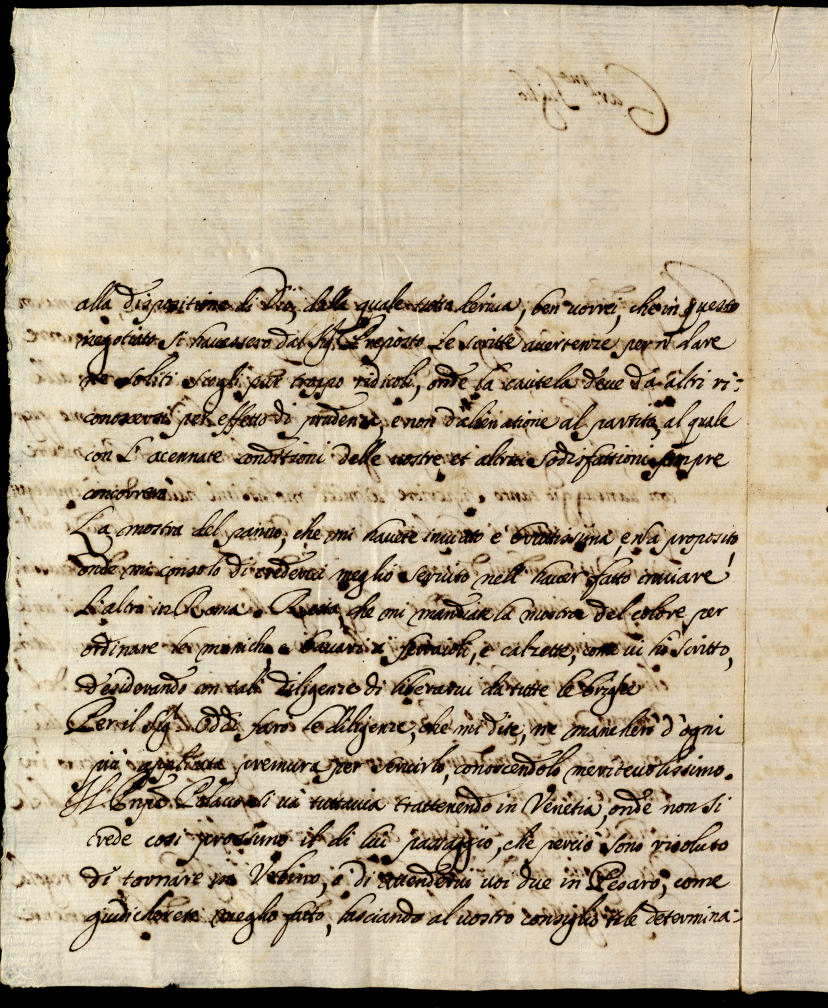 alla dispositione di Dio, dalla quale tutto deriva, ben vorrei, che in questo
negotiato si havessero dal Sig.r Preposto le scritte avertenze per nō dare
ne soliti scogli pur troppo ridicoli, onde la cautela deve da altri ri:
conoscersi per effetto di prudenza, e non d'alienatione al partito, al quale
con l'acennate conditioni delle vostre et altrui sodisfattioni sempre
concorrerò
La mostra del panno, che mi havete inviato è bruttissima, e nō a proposito
onde mi consolo di crederci meglio serviuto nell'haver fatto inviare
l'altro in Roma. Resta, che mi mandiate la mostra del colore per
ordinare le maniche, e bavari a ferraioli, e calzette, come vi hò scritto,
desiderando con tali diligenze di liberarvi da tutte le brighe
Per il Sig.r Oddi farò le diligenze, che mi dite, ne mancherò d'ogni
più premura per servirlo, conoscendolo meritevolissimo.
Il Polacco si và tuttavia trattenendo in Venetia, onde non si
vede così prossimo il di lui passaggio, che perciò sono risoluto
di tornare in Urbino, ò di attendervi voi due in Pesaro, come
giudicherete meglio fatto, lasciando al vostro consiglio il determina: